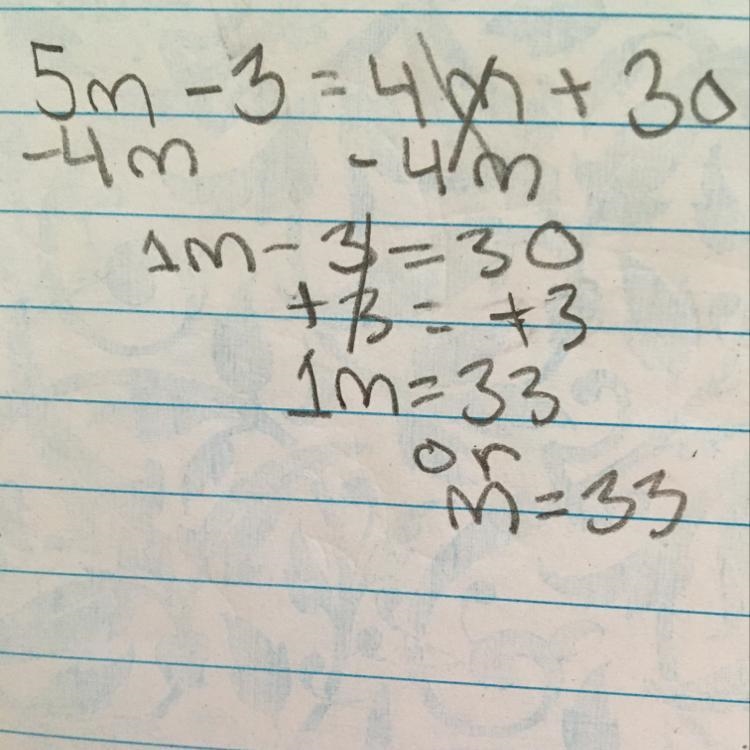 5m - 3 = 4m + 30
-4m -4m
1m - 3 = 30
+3 = +3
1m = 33
or
m = 33